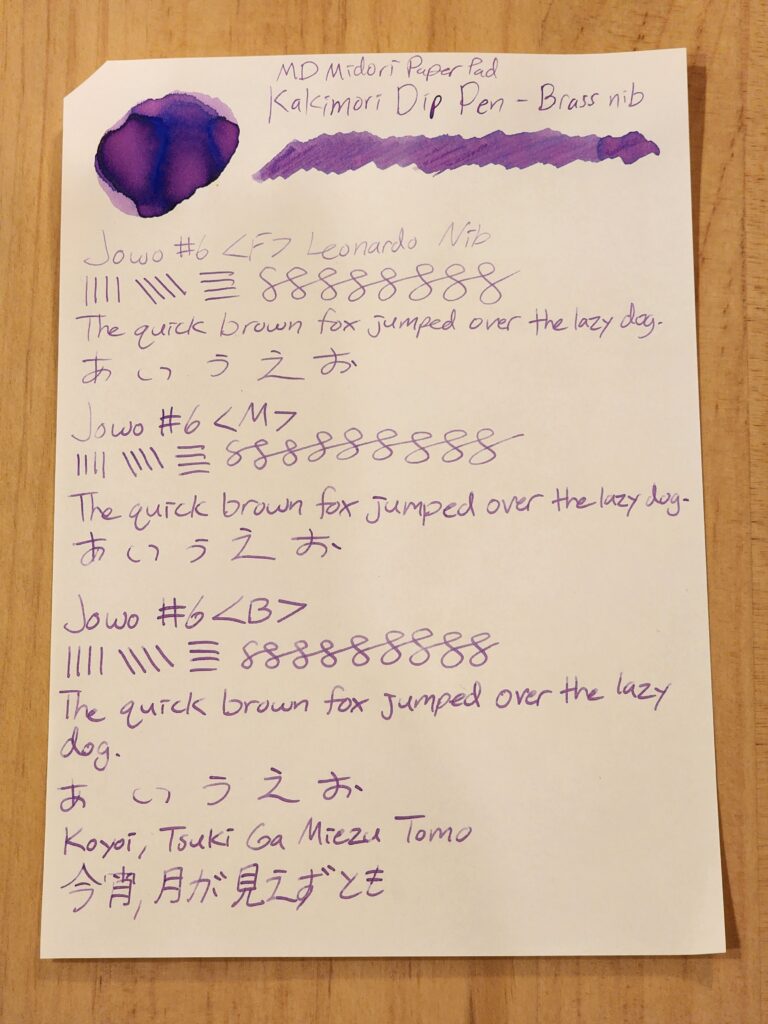 MD Midori Paper Pad
Kakimori Dip Pen - Brass nib
Jowo #6 <F> Leonardo Nib
|||| \\\\ 88888888
The quick brown fox jumped over the lazy dog.
あ い う え お
Jowo #6 <M>
|||| \\\\ 888888888
The quick brown fox jumped over the lazy dog.
あ い う え お
Jowo #6 <B>
|||| \\\\ 888888888
The quick brown fox jumped over the lazy
dog.
あ い う え お
Koyoi, Tsuki Ga Miezu Tomo
今宵, 月が見えずとも